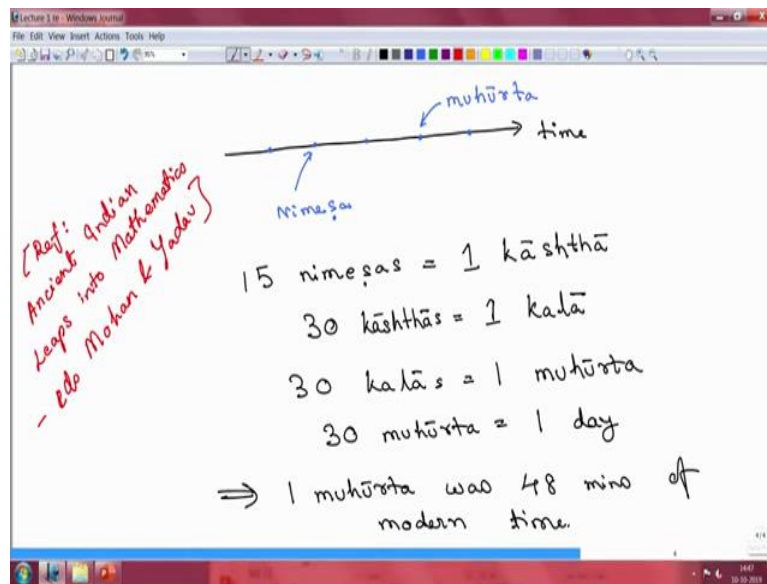 Lecture 1 ie - Windows Journal
File Edit View Insert Actions Tools Help
muhūrta
time
Nimeṣas
[Ref:
Ancient Indian
Leaps into Mathematics
- eds Mohan & Yadav]
15 nimeṣas = 1 kāshthā
30 kāshthās = 1 kalā
30 kalās = 1 muhūrta
30 muhūrta = 1 day
⇒ 1 muhūrta was 48 mins of
modern time.
4/4
14:47
10-10-2019